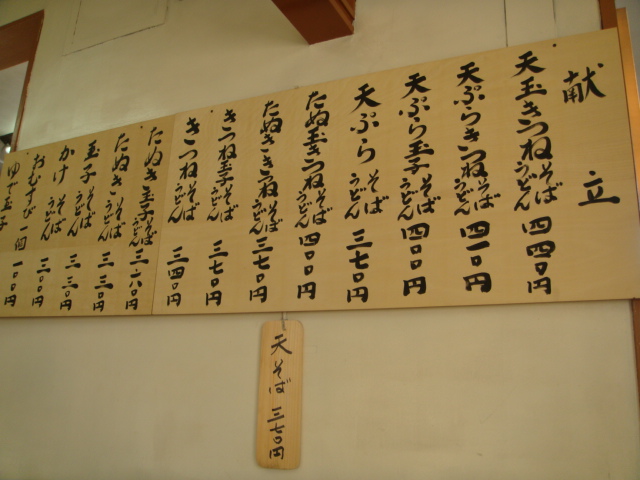 献立
天玉きつねそばうどん 四四〇円
天ぷらきつねそばうどん 四一〇円
天ぷら玉子そばうどん 四〇〇円
天ぷらそばうどん 三七〇円
たぬ玉きつねそばうどん 四〇〇円
たぬききつねそばうどん 三七〇円
きつね玉子そばうどん 三七〇円
きつねそばうどん 三四〇円
たぬき玉子そばうどん 三六〇円
たぬきそばうどん 三三〇円
玉子そばうどん 三三〇円
かけそばうどん 三〇〇円
おむすび一個 一〇〇円
ゆで玉子
天そば 三七〇円